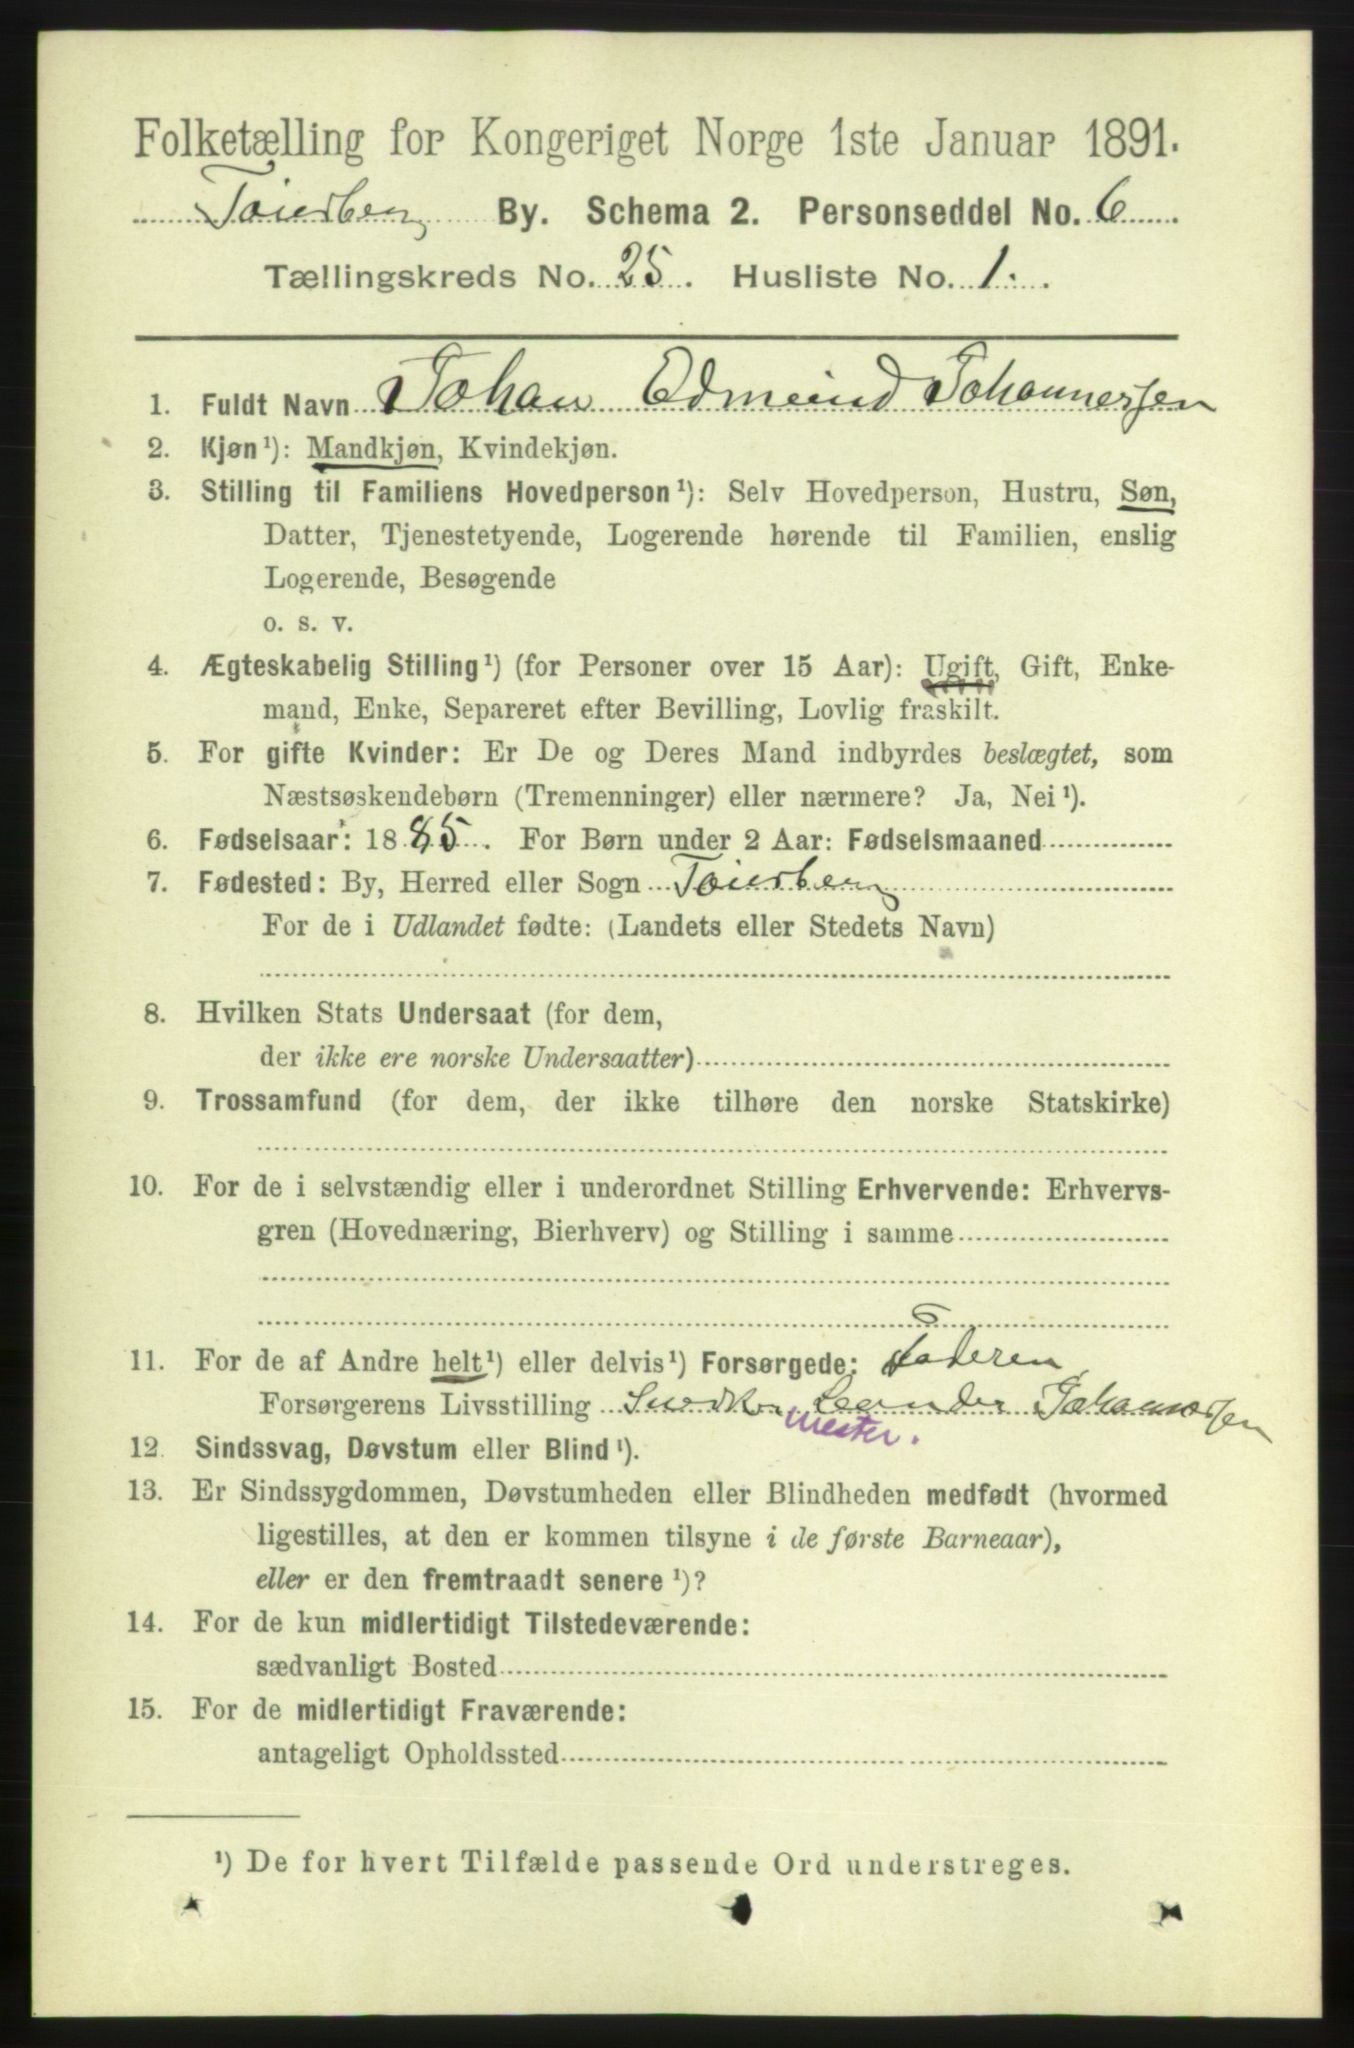 Folketælling for Kongeriget Norge 1ste Januar 1891.
Tøiesberg By. Schema 2. Personseddel No. 6
Tællingskreds No. 25. Husliste No. 1.
1. Fuldt Navn Johan Edmund Johannessen
2. Kjøn¹): Mandkjøn, Kvindekjøn.
3. Stilling til Familiens Hovedperson¹): Selv Hovedperson, Hustru, Søn,
Datter, Tjenestetyende, Logerende hørende til Familien, enslig
Logerende, Besøgende
o. s. v.
4. Ægteskabelig Stilling¹) (for Personer over 15 Aar): Ugift, Gift, Enke-
mand, Enke, Separeret efter Bevilling, Lovlig fraskilt.
5. For gifte Kvinder: Er De og Deres Mand indbyrdes beslægtet, som
Næstsøskendebørn (Tremenninger) eller nærmere? Ja, Nei¹).
6. Fødselsaar: 1885. For Børn under 2 Aar: Fødselsmaaned
7. Fødested: By, Herred eller Sogn Tøiesberg
For de i Udlandet fødte: (Landets eller Stedets Navn)
8. Hvilken Stats Undersaat (for dem,
der ikke ere norske Undersaatter)
9. Trossamfund (for dem, der ikke tilhøre den norske Statskirke)
10. For de i selvstændig eller i underordnet Stilling Erhvervende: Erhvervs-
gren (Hovednæring, Bierhverv) og Stilling i samme
11. For de af Andre helt¹) eller delvis¹) Forsørgede: Faderen
Forsørgerens Livsstilling Snedker Leander Johannessen
mester.
12. Sindssvag, Døvstum eller Blind¹).
13. Er Sindssygdommen, Døvstumheden eller Blindheden medfødt (hvormed
ligestilles, at den er kommen tilsyne i de første Barneaar),
eller er den fremtraadt senere¹)?
14. For de kun midlertidigt Tilstedeværende:
sædvanligt Bosted
15. For de midlertidigt Fraværende:
antageligt Opholdssted
¹) De for hvert Tilfælde passende Ord understreges.